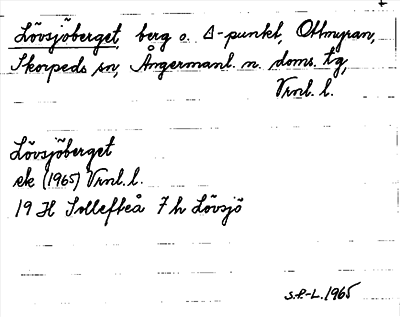 Lövsjöberget, berg o. Δ-punkt, Ottmyran,
Skorpeds sn, Ångermanl. n. doms. tg,
Vrnl. l.
Lövsjöberget
ek (1965) Vrnl. l.
19 H Sollefteå 7 h Lövsjö
S.P.-L. 1965